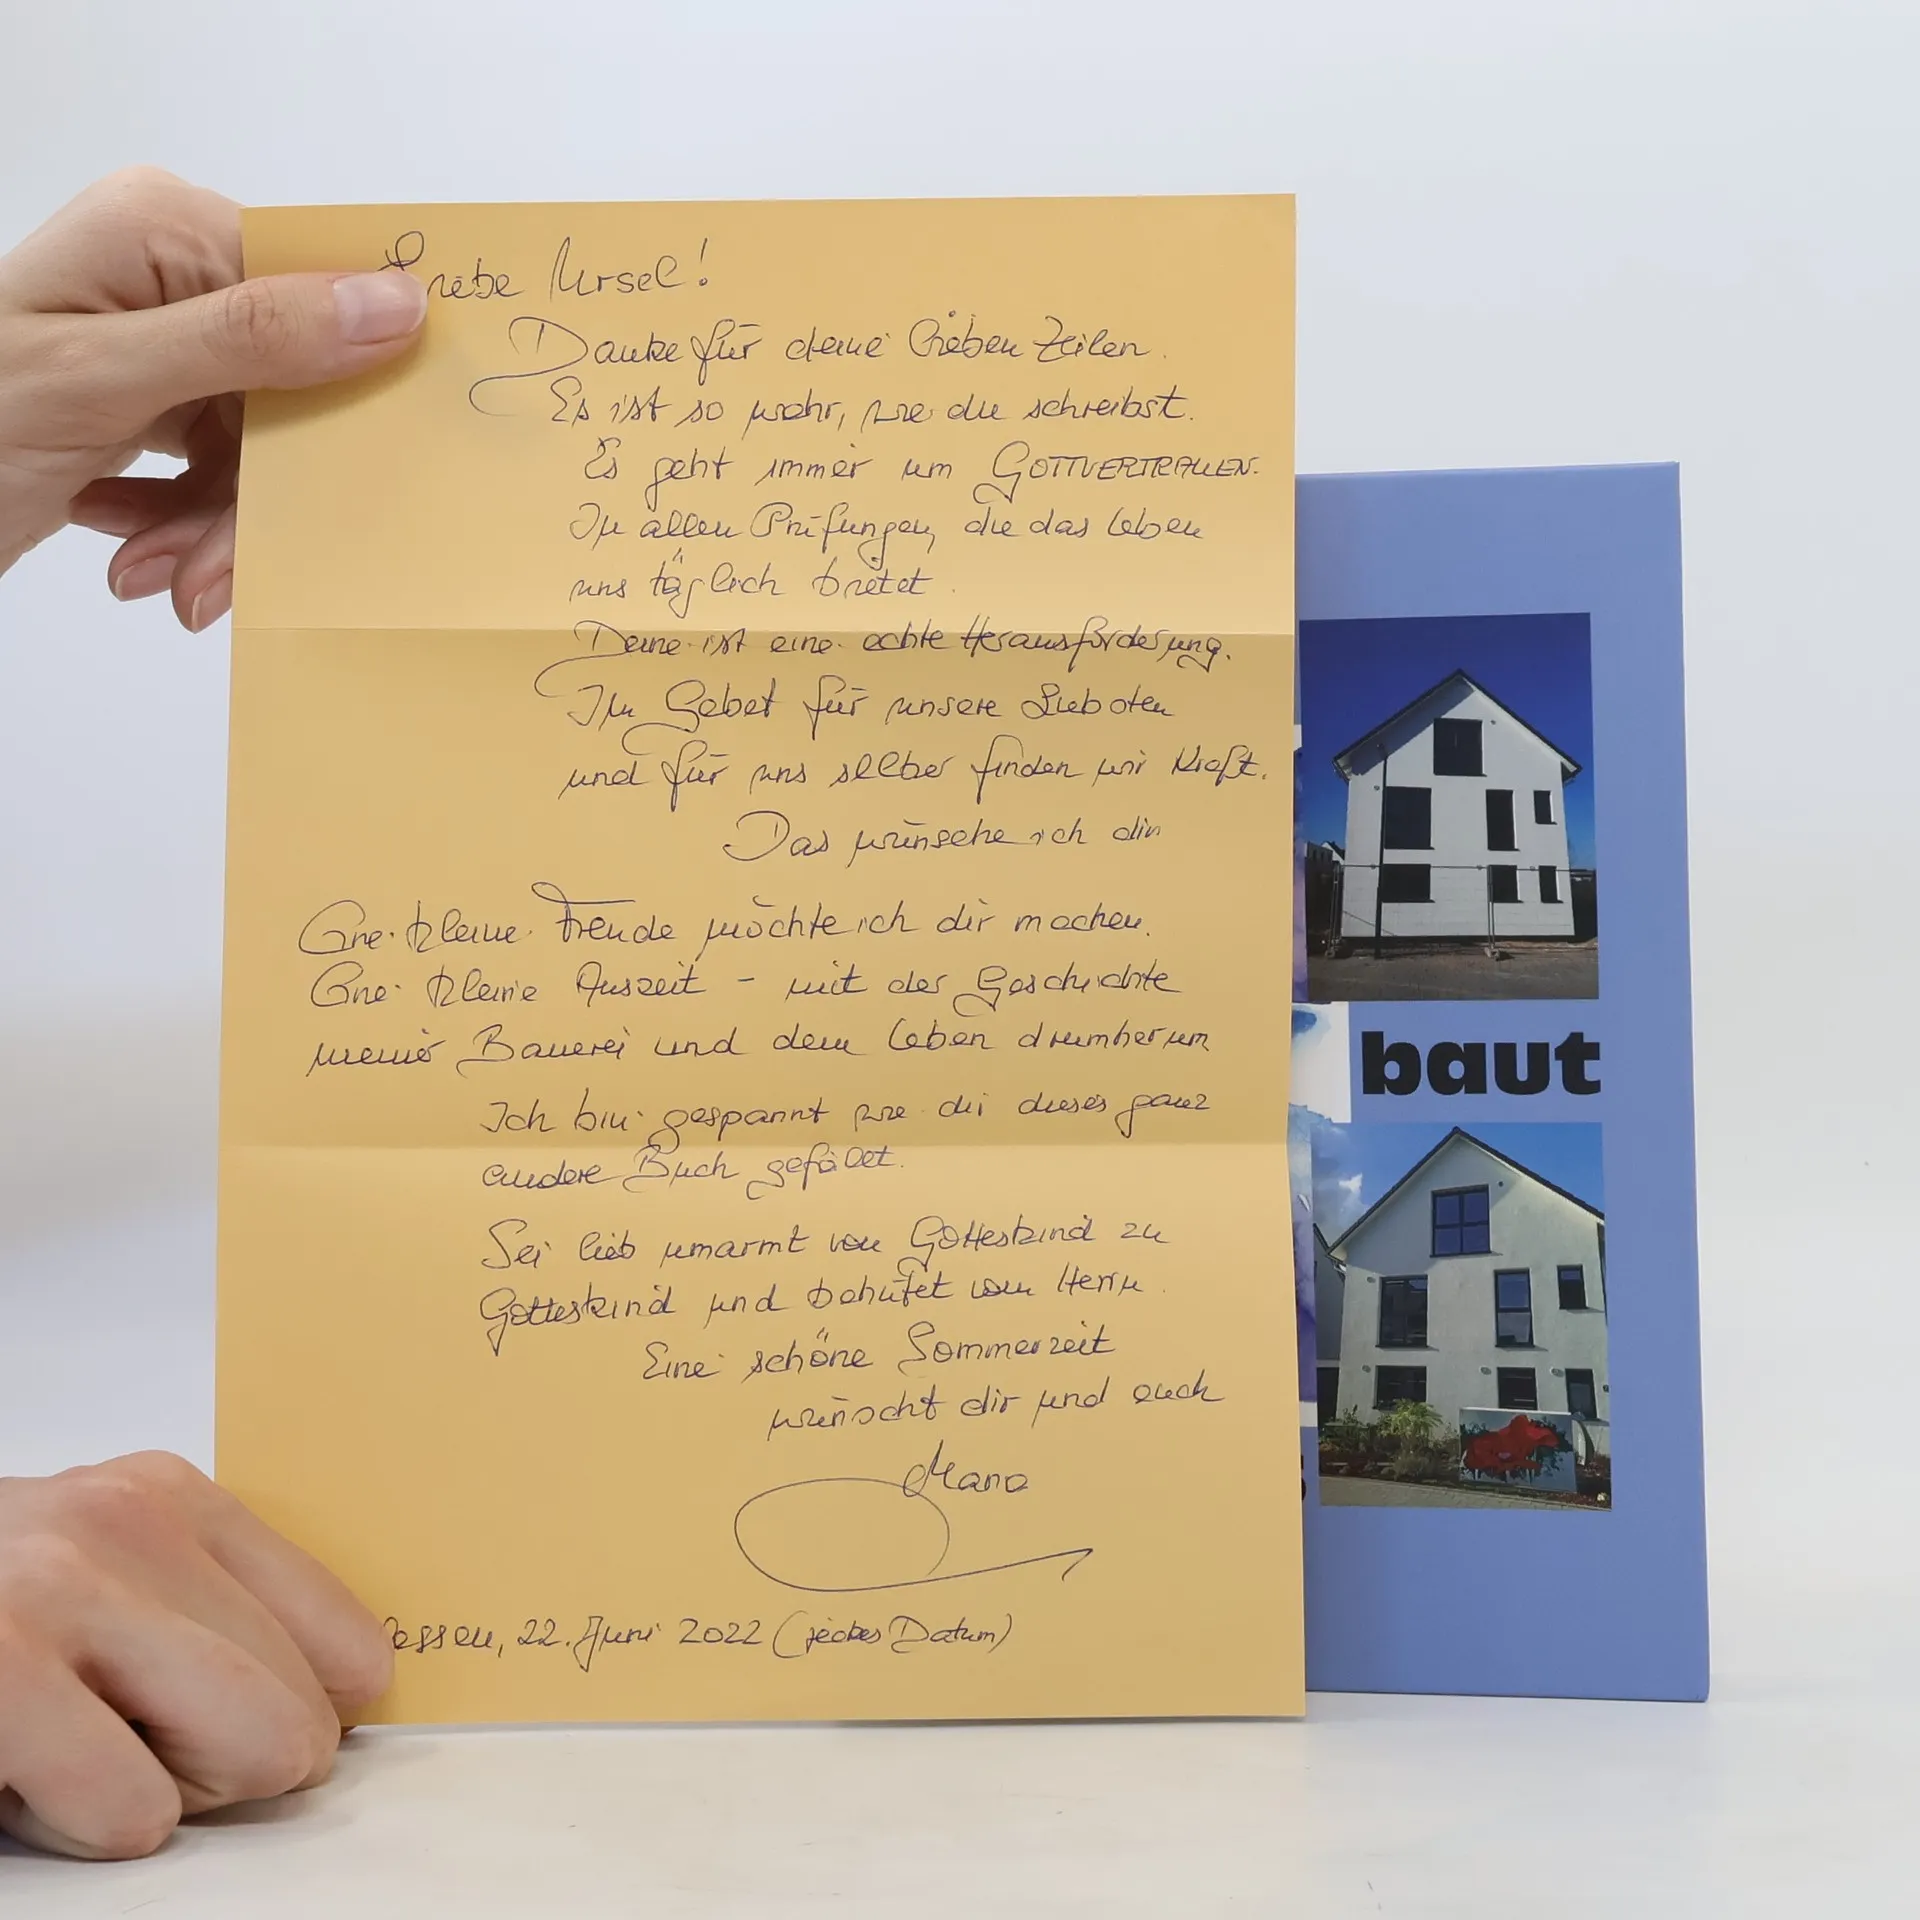 Liebe Ursel!
Danke für deine lieben Zeilen.
Es ist so wahr, wie du schreibst.
Es geht immer um GOTTVERTRAUEN.
In allen Prüfungen, die das Leben
uns täglich bietet.
Deine ist eine echte Herausforderung.
Im Gebet für unsere Liebsten
und für uns selber finden wir Kraft.
Das wünsche ich dir
Eine kleine Freude möchte ich dir machen.
Eine kleine Auszeit – mit der Geschichte
meiner Bauerei und dem Leben drumherum
Ich bin gespannt wie dir dieses ganz
andere Buch gefällt.
Sei lieb umarmt von Gotteskind zu
Gotteskind und behütet vom Herrn.
Eine schöne Sommerzeit
wünscht dir und euch
22. Juni 2022 ( Datum)
baut